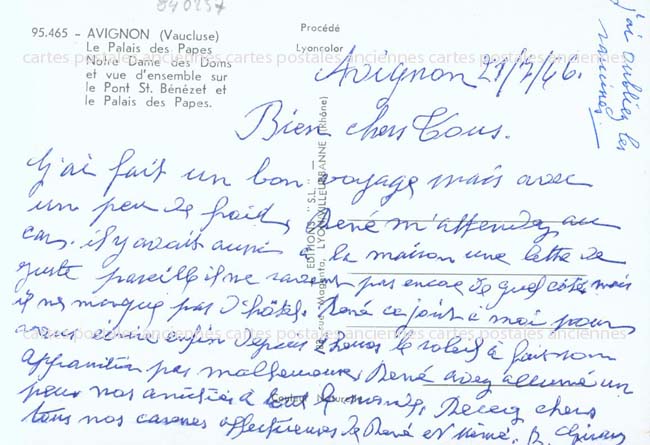 840257
95.465 - AVIGNON (Vaucluse)
Le Palais des Papes
Notre Dame des Doms
et vue d'ensemble sur
le Pont St. Bénézet et
le Palais des Papes.
Procédé
Lyoncolor
j'ai oublier les
racines
Avignon 21/7/66.
Bien chers tous.
j'ai fait un bon voyage mais avec
un peu de froid, René m'attendez au
car. il y avait aussi à la maison une lettre de
pareille il ne savent pas encore de quel côté mais
il ne manque pas d'hôtel. René ce joint à moi pour
vous écrire enfin depuis le soleil à fait son
apparition pas malheureux, René avez allumé un
peu nos amitiés à tout le monde, Recevez chers
tous nos caresses affectueuses de René et Mémé
EDITIONS "S.L." -
22, rue Magenta, LYON-VILLEURBANNE (Rhône)
Couleur Naturelle
cartes postales anciennes cartes postales anciennes cartes postales anciennes
cartes postales anciennes cartes postales anciennes cartes postales anciennes